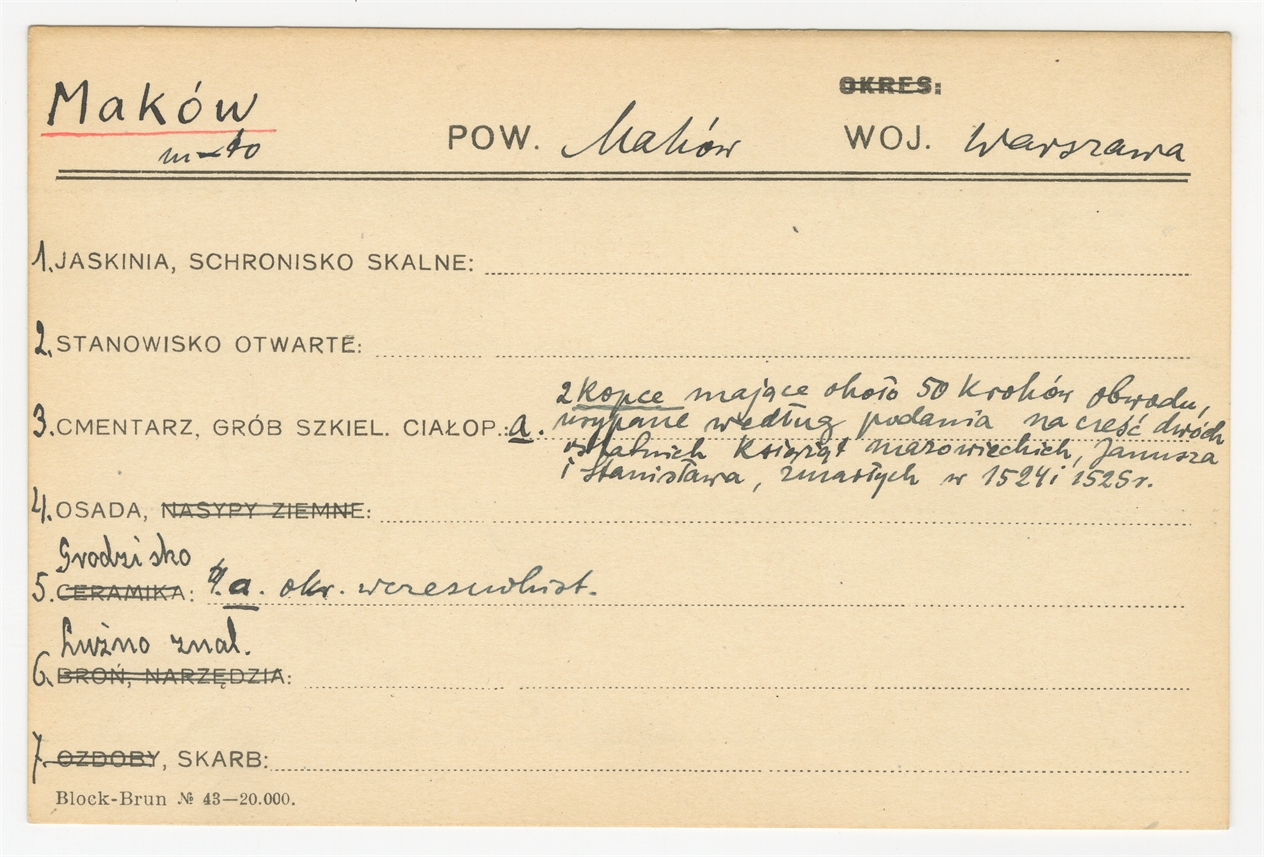 OKRES:
Maków
m-to
POW. Maków WOJ. Warszawa
1. JASKINIA, SCHRONISKO SKALNE:
2. STANOWISKO OTWARTE:
2 kopce mające około 50 kroków obwodu,
3. CMENTARZ, GRÓB SZKIEL. CIAŁOP.: a. usypane według podania na cześć dwóch
ostatnich książąt mazowieckich, Janusza
i Stanisława, zmarłych w 1524 i 1525 r.
4. OSADA, NASYPY ZIEMNE:
Grodzisko
5. CERAMIKA: a. okr. wczesnohist.
Luźno znal.
6. BROŃ, NARZĘDZIA:
7. OZDOBY, SKARB:
Block-Brun № 43—20.000.